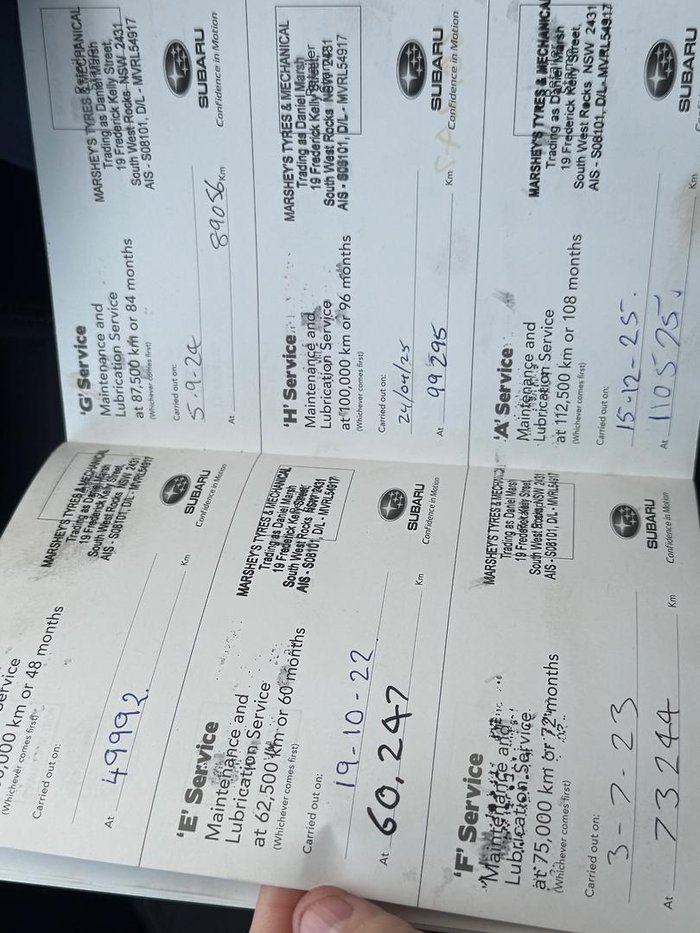 'G' Service
Maintenance and
Lubrication Service
at 87,500 km or 84 months
(Whichever comes first)
Carried out on:
5-9-24
At 89056 Km
MARSHEY'S TYRES & MECHANICAL
Trading as Daniel Marsh
19 Frederick Kelly Street,
South West Rocks NSW 2431
AIS - S08101, D/L - MVRL54917
SUBARU
Confidence in Motion
'H' Service
Maintenance and
Lubrication Service
at 100,000 km or 96 months
(Whichever comes first)
Carried out on:
24/04/25
At 99295 Km
MARSHEY'S TYRES & MECHANICAL
Trading as Daniel Marsh
19 Frederick Kelly Street,
South West Rocks NSW 2431
AIS - S08101, D/L - MVRL54917
SUBARU
Confidence in Motion
'A' Service
Maintenance and
Lubrication Service
at 112,500 km or 108 months
(Whichever comes first)
Carried out on:
15-12-25.
At 110525. Km
MARSHEY'S TYRES & MECHANICAL
Trading as Daniel Marsh
19 Frederick Kelly Street,
South West Rocks NSW 2431
AIS - S08101, D/L - MVRL54917
SUBARU
Service
,000 km or 48 months
(Whichever comes first)
Carried out on:
At 49992. Km
MARSHEY'S TYRES & MECHANICAL
Trading as Daniel Marsh
19 Frederick Kelly Street,
South West Rocks NSW 2431
AIS - S08101, D/L - MVRL54917
SUBARU
Confidence in Motion
'E' Service
Maintenance and
Lubrication Service
at 62,500 km or 60 months
(Whichever comes first)
Carried out on:
19-10-22
At 60,247 Km
MARSHEY'S TYRES & MECHANICAL
Trading as Daniel Marsh
19 Frederick Kelly Street,
South West Rocks NSW 2431
AIS - S08101, D/L - MVRL54917
SUBARU
Confidence in Motion
'F' Service
Maintenance and
Lubrication Service
at 75,000 km or 72 months
(Whichever comes first)
Carried out on:
3-7-23
At 73244 Km
MARSHEY'S TYRES & MECHANICAL
Trading as Daniel Marsh
19 Frederick Kelly Street,
South West Rocks NSW 2431
AIS - S08101, D/L - MVRL54917
SUBARU
Confidence in Motion